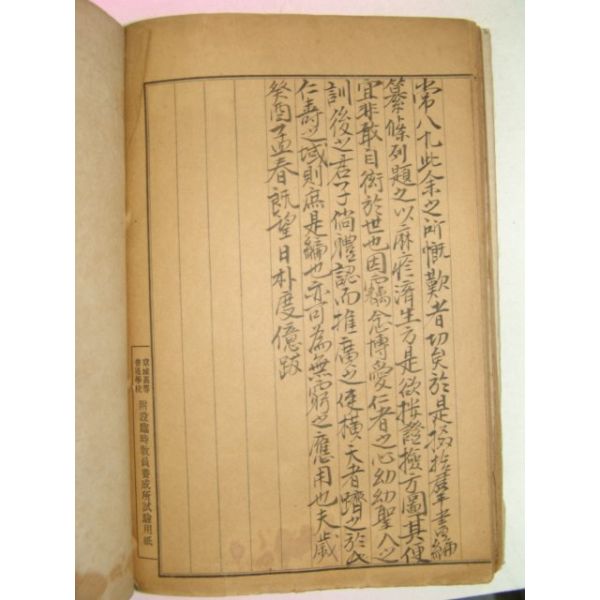 常八九此余之所慨歎者切矣於是掇拾群書編
纂條列題之以麻疹濟生方是欲按證撿方圖其便
宜非敢自衒於世也因竊念博愛仁者之心幼幼聖人之
訓後之君子倘體認而推廣之使橫夭者躋之於
仁壽之域則庶是編也亦可為無窮之應用也夫歲
癸酉孟春旣望日朴度億跋
京城高等普通學校
附設臨時敎員養成所試驗用紙